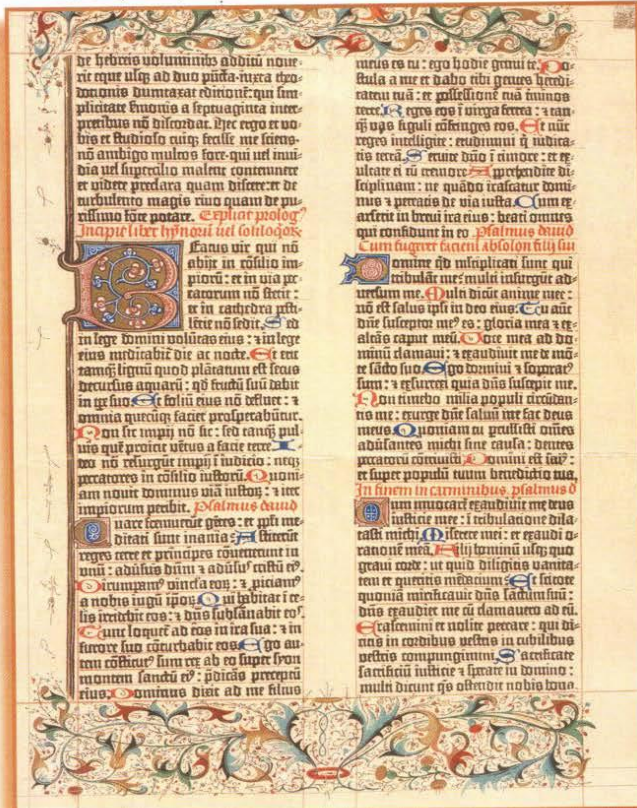 de hebreis voluminibꝰ additū noue-
rit eque usqꝫ ad duo pūcta · iuxta theo-
dotionis dumtaxat editionē: qui sim-
plicitate ẜmonis a septuaginta inter-
pretibus nō discordat. Hec ergo et vo-
bis et studioso cuiqꝫ fecisse me sciens ·
nō ambigo multos fore · qui vel inui-
dia vel supercilio malent contemnere
et videre preclara quam discere: et de
turbulento magis riuo quam de pu-
rissimo fōte potare. Explicit prologꝰ
Incipit liber hymnorū vel soliloquioꝝ
Beatus vir qui nō
abijt in cōsilio im-
piorū: et in via pec-
catorum nō stetit:
et in cathedra pesti-
lētie nō sedit. Sed
in lege domini volūtas eius: et in lege
eius meditabit̄ die ac nocte. Et erit
tamqꝫ lignū quod plātatum est secus
decursus aquarū: qd̄ fructū suū dabit
in tp̄e suo. Et foliū eius nō defluet: et
omnia quecūqꝫ faciet prosperabūtur.
Non sic impij nō sic: sed tanqꝫ pul-
uis quē proicit vētus a facie terre. I-
deo nō resurgūt impij ī iudicio: neqꝫ
peccatores in cōsilio iustorū. Quoni-
am nouit dominus viā iustoꝝ: et iter
impiorum peribit. Psalmus dauid
Quare fremuerūt gētes: et pp̄li me-
ditati sunt inania: Astiterūt
reges terre et principes cōuenerunt in
vnū: aduersus dn̄m et aduersus cristū eiꝰ.
Dirumpamꝰ vincula eoꝝ: et proiciamꝰ
a nobis iugū ip̄oꝝ. Qui habitat ī ce-
lis irridebit eos: et dn̄s subsannabit eoſ.
Tunc loquet̄ ad eos in ira sua: et in
furore suo cōturbabit eos. Ego au-
tem cōstitutꝰ sum rex ab eo super syon
montem sanctū eiꝰ: p̄dicās preceptū
eius. Dominus dixit ad me filius
meus es tu: ego hodie genui te. Po-
stula a me et dabo tibi gentes heredi-
tatem tuā: et possessionē tuā t̄minos
terre. Reges eos ī virga ferrea: et tan-
qꝫ vas figuli cōfringes eos. Et nūc
reges intelligite: erudimini qui iudica-
tis terrā. Seruite dn̄o ī timore: et ex-
ultate ei cū tremore. Apprehendite di-
sciplinam: ne quādo irascatur domi-
nus et pereatis de via iusta. Cum ex-
arserit in breui ira eius: beati omnes
qui confidunt in eo. Psalmus dauid
Cum fugeret a facie absolon filij sui
Domine qd̄ multiplicati sunt qui
tribulāt me: multi insurgūt ad-
uersum me. Multi dicūt anime mee:
nō est salus ipsi in deo eius. Tu autē
dn̄e susceptor meꝰ es: gloria mea et ex-
altās caput meū. Voce mea ad do-
minū clamaui: et exaudiuit me de mō-
te sācto suo. Ego dormiui et soporatꝰ
sum: et exsurrexi quia dn̄s suscepit me.
Non timebo milia populi circūdan-
tis me: exurge dn̄e saluū me fac deus
meus. Quoniam tu percussisti om̄es
aduersantes michi sine causa: dentes
peccatorū cōtriuisti. Domini est salꝰ:
et super populū tuum benedictio tua.
In finem in carminibus. psalmus d
Cum inuocarē exaudiuit me deus
iusticie mee: ī tribulatione dila-
tasti michi. Miserere mei: et exaudi o-
rationē meā. Filij hominū usqꝫ quo
graui corde: ut quid diligitis vanita-
tem et queritis mēdacium: Et scitote
quoniā mirificauit dn̄s sāctum suū:
dn̄s exaudiet me cū clamauero ad eū.
Irascemini et nolite peccare: qui di-
citis in cordibus vestris in cubilibus
vestris compungimini. Sacrificate
sacrificiū iusticie et sperate in domino:
multi dicunt qis ostendit nobis bona.